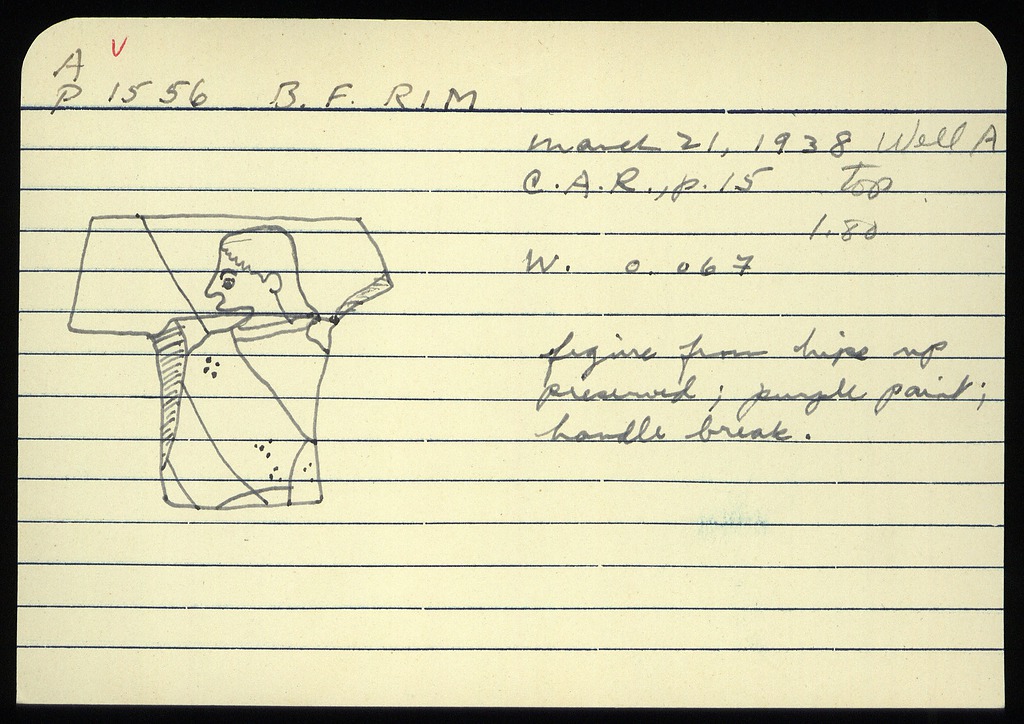 A V
P 1556 B.F. RIM
March 21, 1938 Well A
C.A.R., p. 15 top
1.80
W. 0.067
figure from hips up
preserved; purple paint;
handle break.